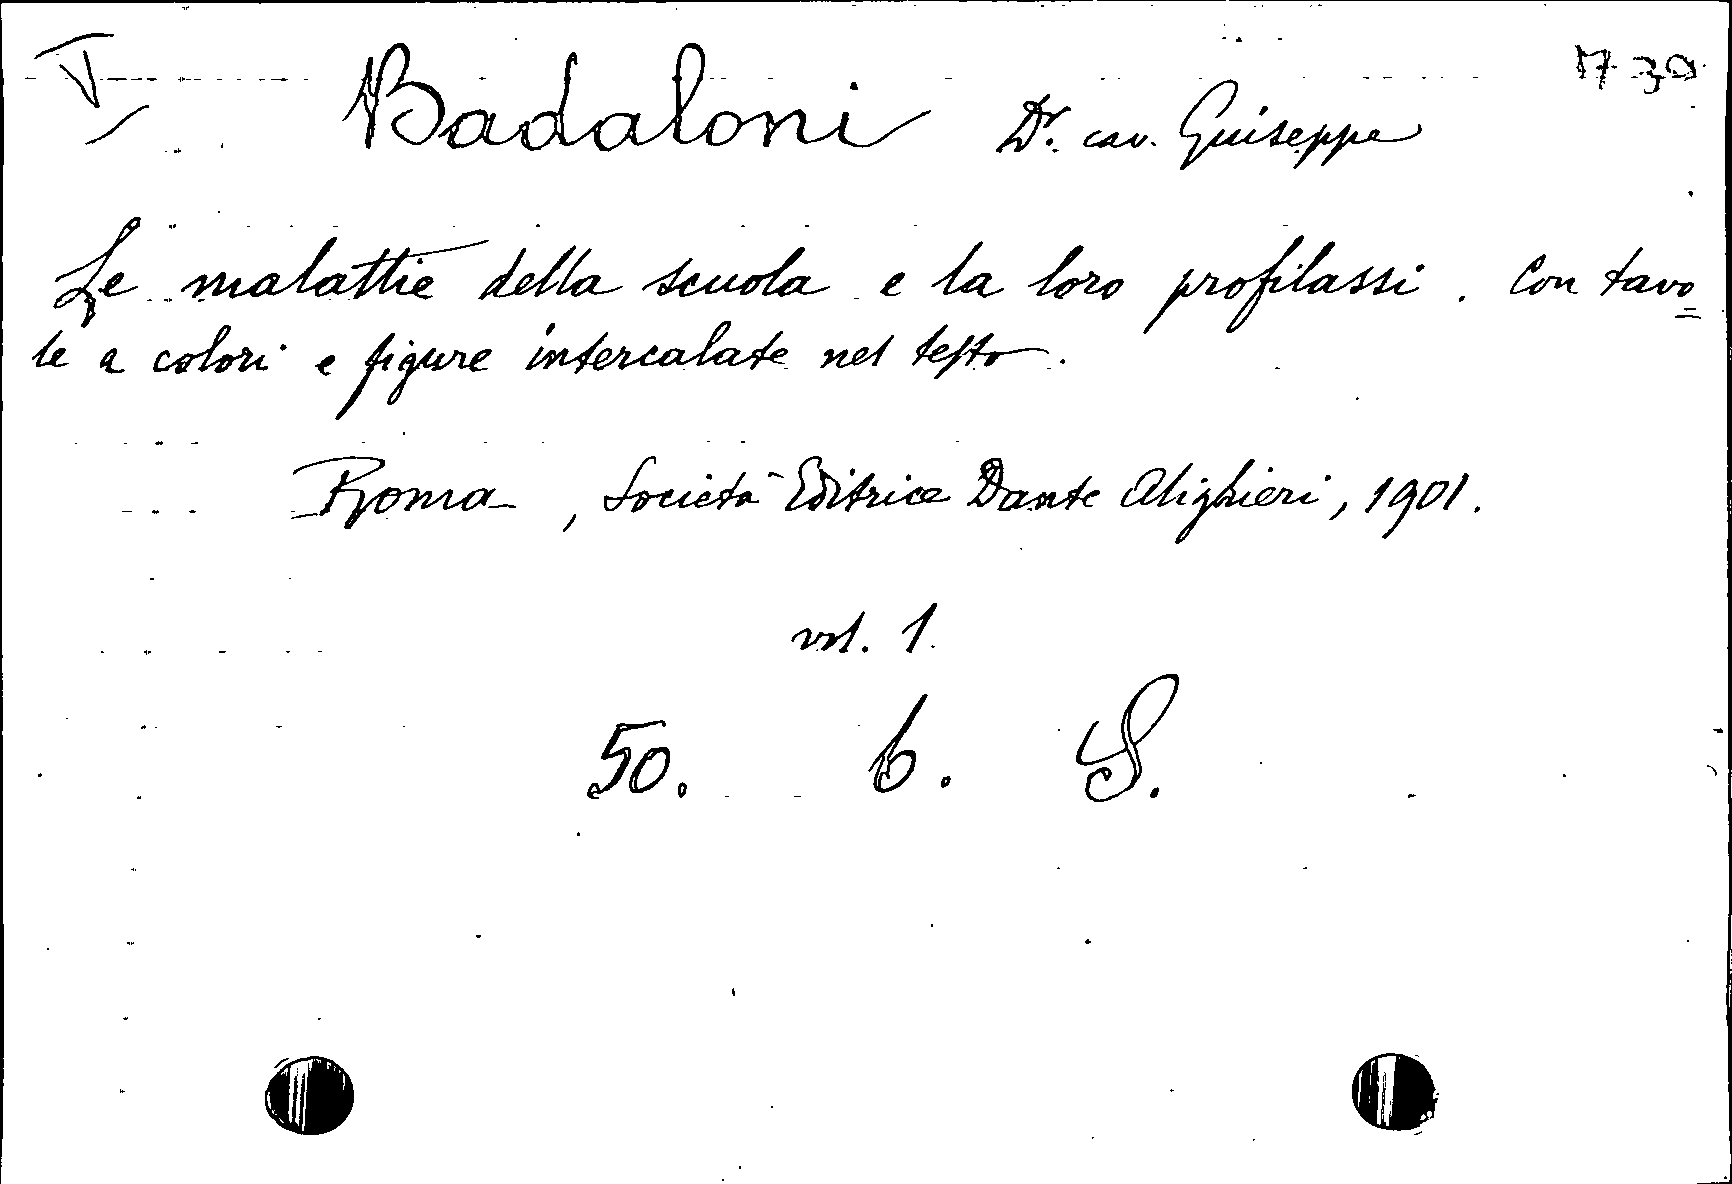 V Badaloni Dr. cav. Guiseppe 1730
Le malattie della scuola e la loro profilassi. Con tavo=
le a colori e figure intercalate nel testo.
Roma, Società Editrice Dante Alighieri, 1901.
vol. 1.
50. b. S.